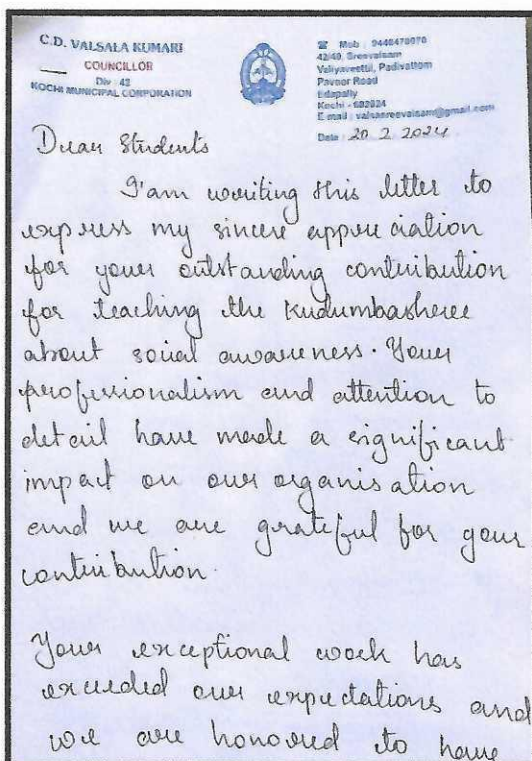 C.D. VALSALA KUMARI
COUNCILLOR
Div : 43
KOCHI MUNICIPAL CORPORATION
Mob : 9446478970
42/49, Sreevalsam
Veliyaveettil, Padivattom
Pavoor Road
Edapally
Kochi - 682024
E mail : valsasreevalsam@gmail.com
Date : 20.2.2024
Dear Students
I'am writing this letter to
express my sincere appreciation
for your outstanding contribution
for teaching the Kudumbasheree
about social awareness. Your
professionalism and attention to
detail have made a significant
impact on our organisation
and we are grateful for your
contribution.
Your exceptional work has
exceeded our expectations and
we are honored to have